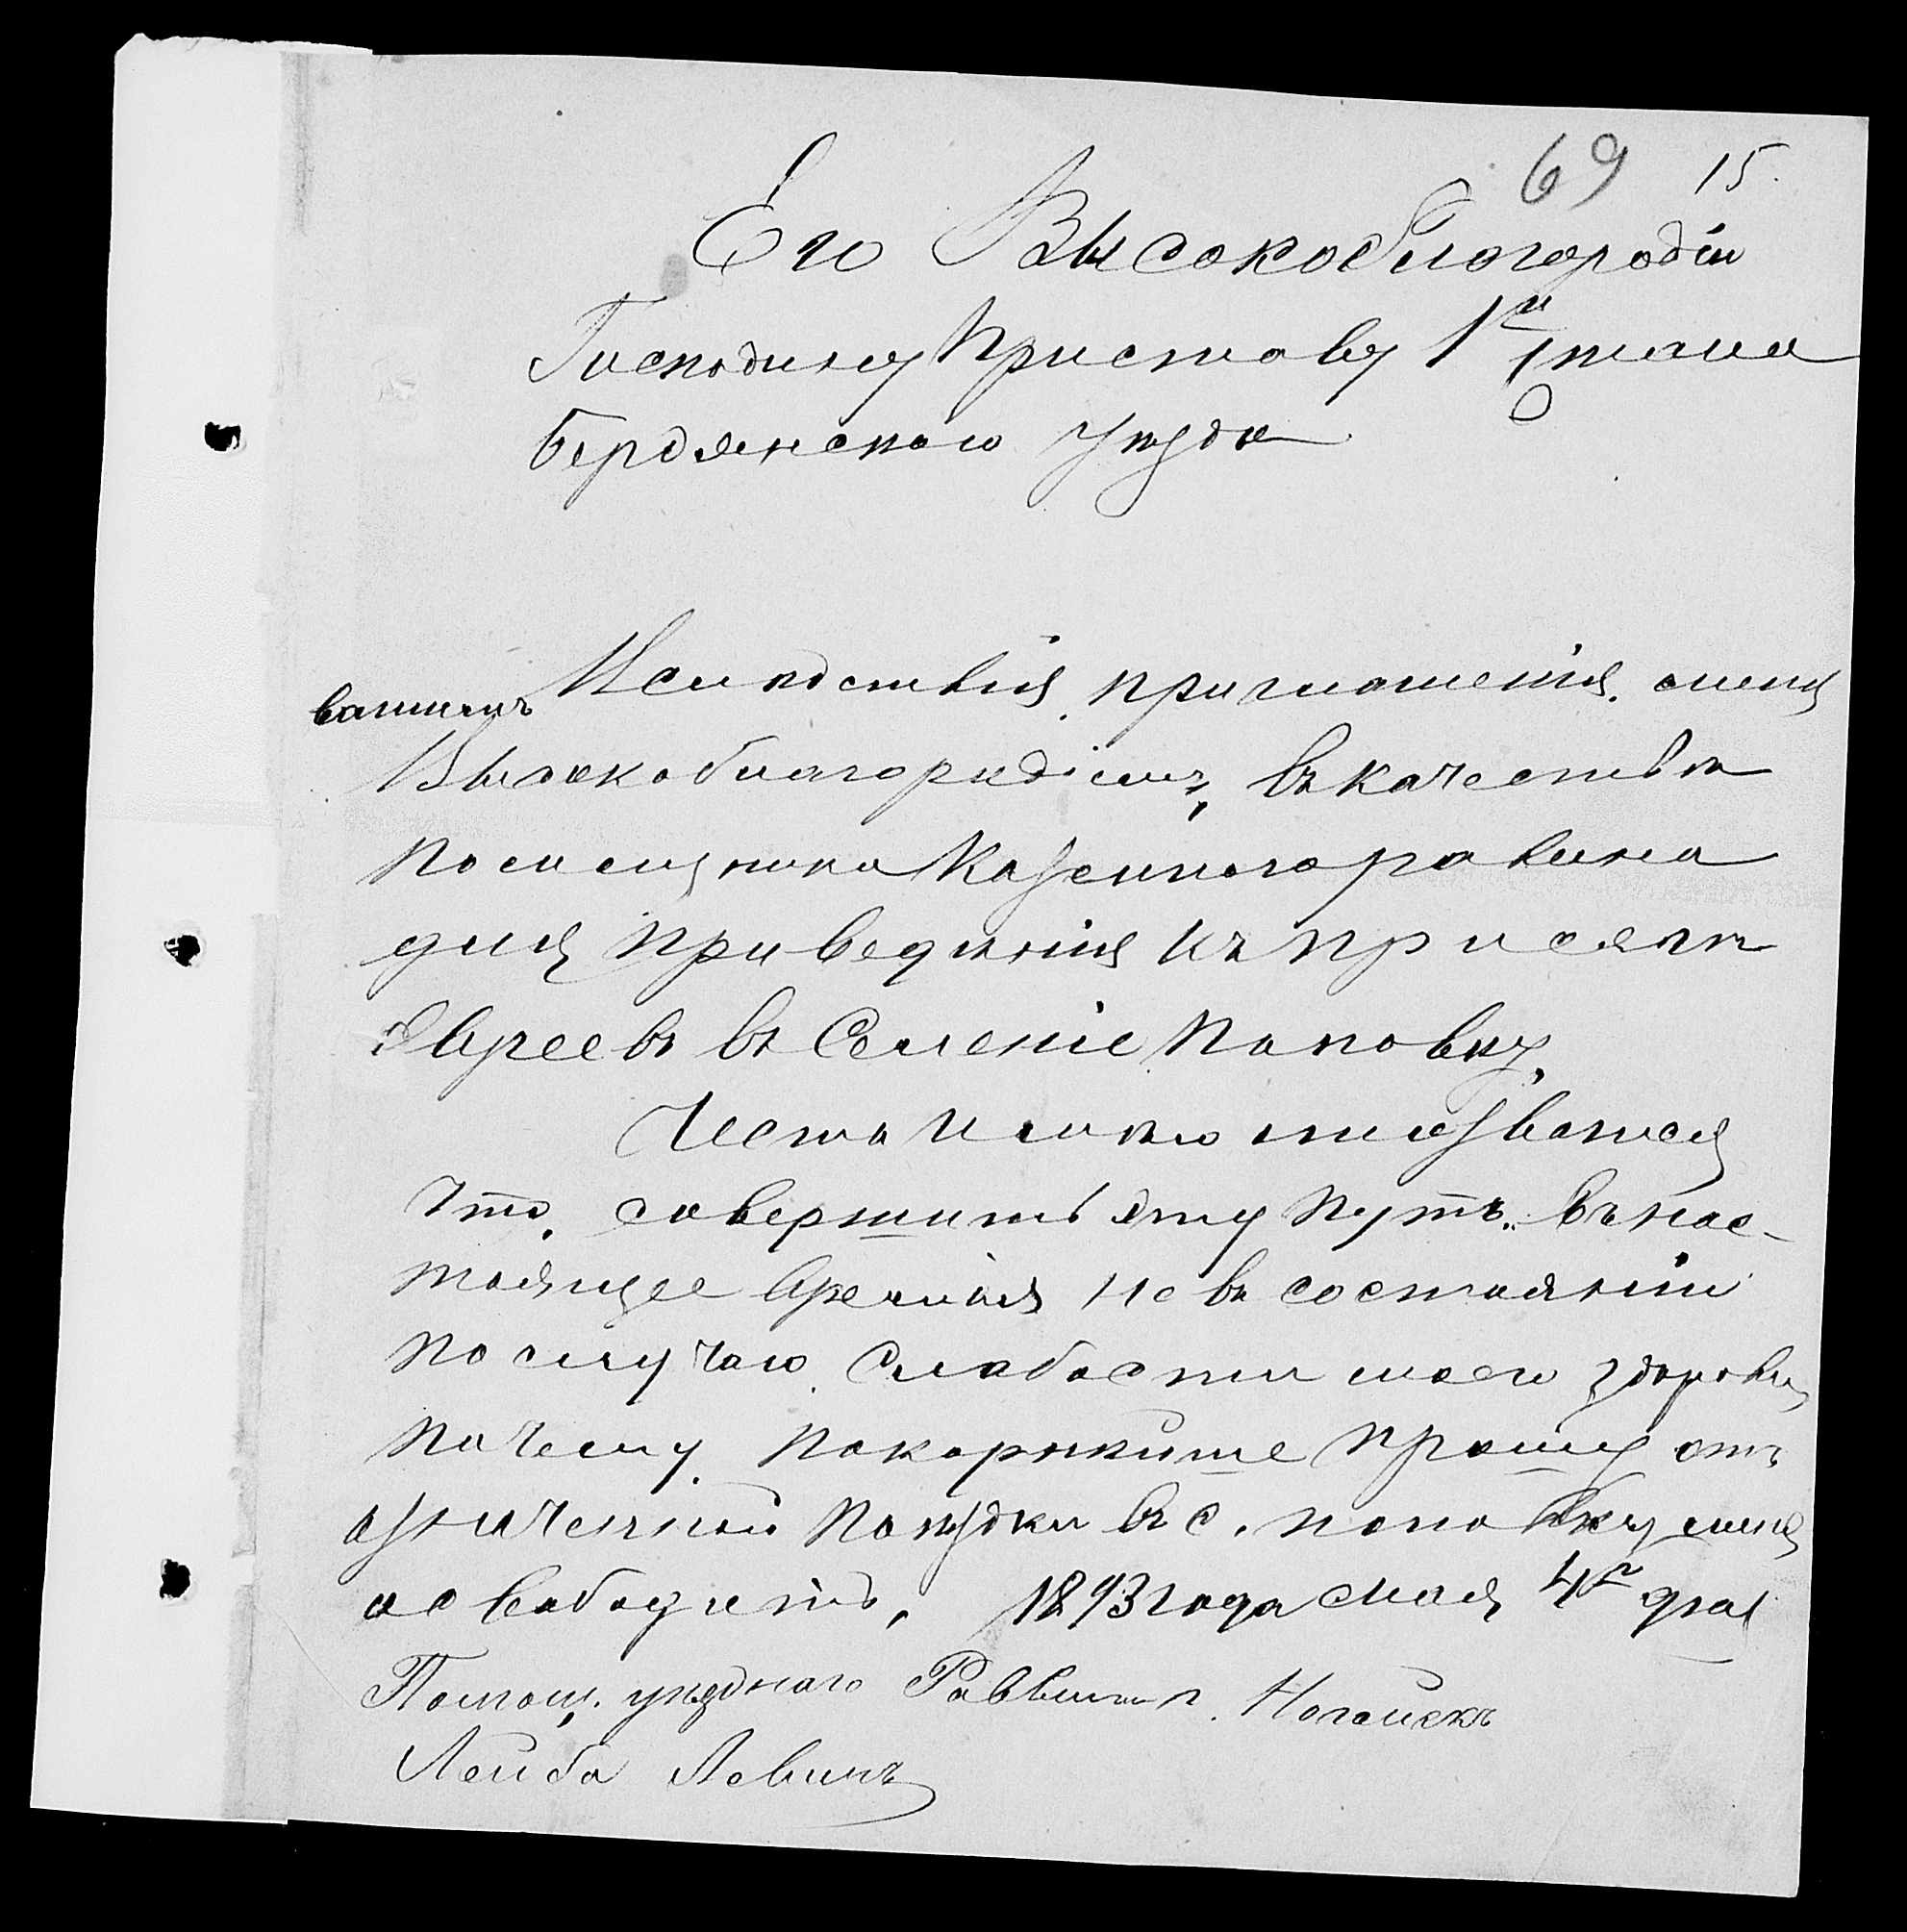 69 15.
Его Высокоблогородію
Господину Приставу 1го Стана
Бердянскаго Уѣзда
Вслѣдствія приглашенія меня
вашимъ
Высокоблагородіемъ, въ качествѣ
Помощника Казеннаго равина
для приведенія къ присягѣ
Евреевъ въ Селеніе Поповку,
Честь Имѣю отозватся
что, совершить эту Путь въ нас-
тоящее время не въ состояніи
По случаю Слабости моего здоровья
Почему Покорнѣйше Прошу отъ
означенной Поѣздки въ с. поповку меня
освободить, 1893 года Мая 4го дня
Помощ. уѣзднаго Раввина г. Ногайскъ
Лейба Левинъ